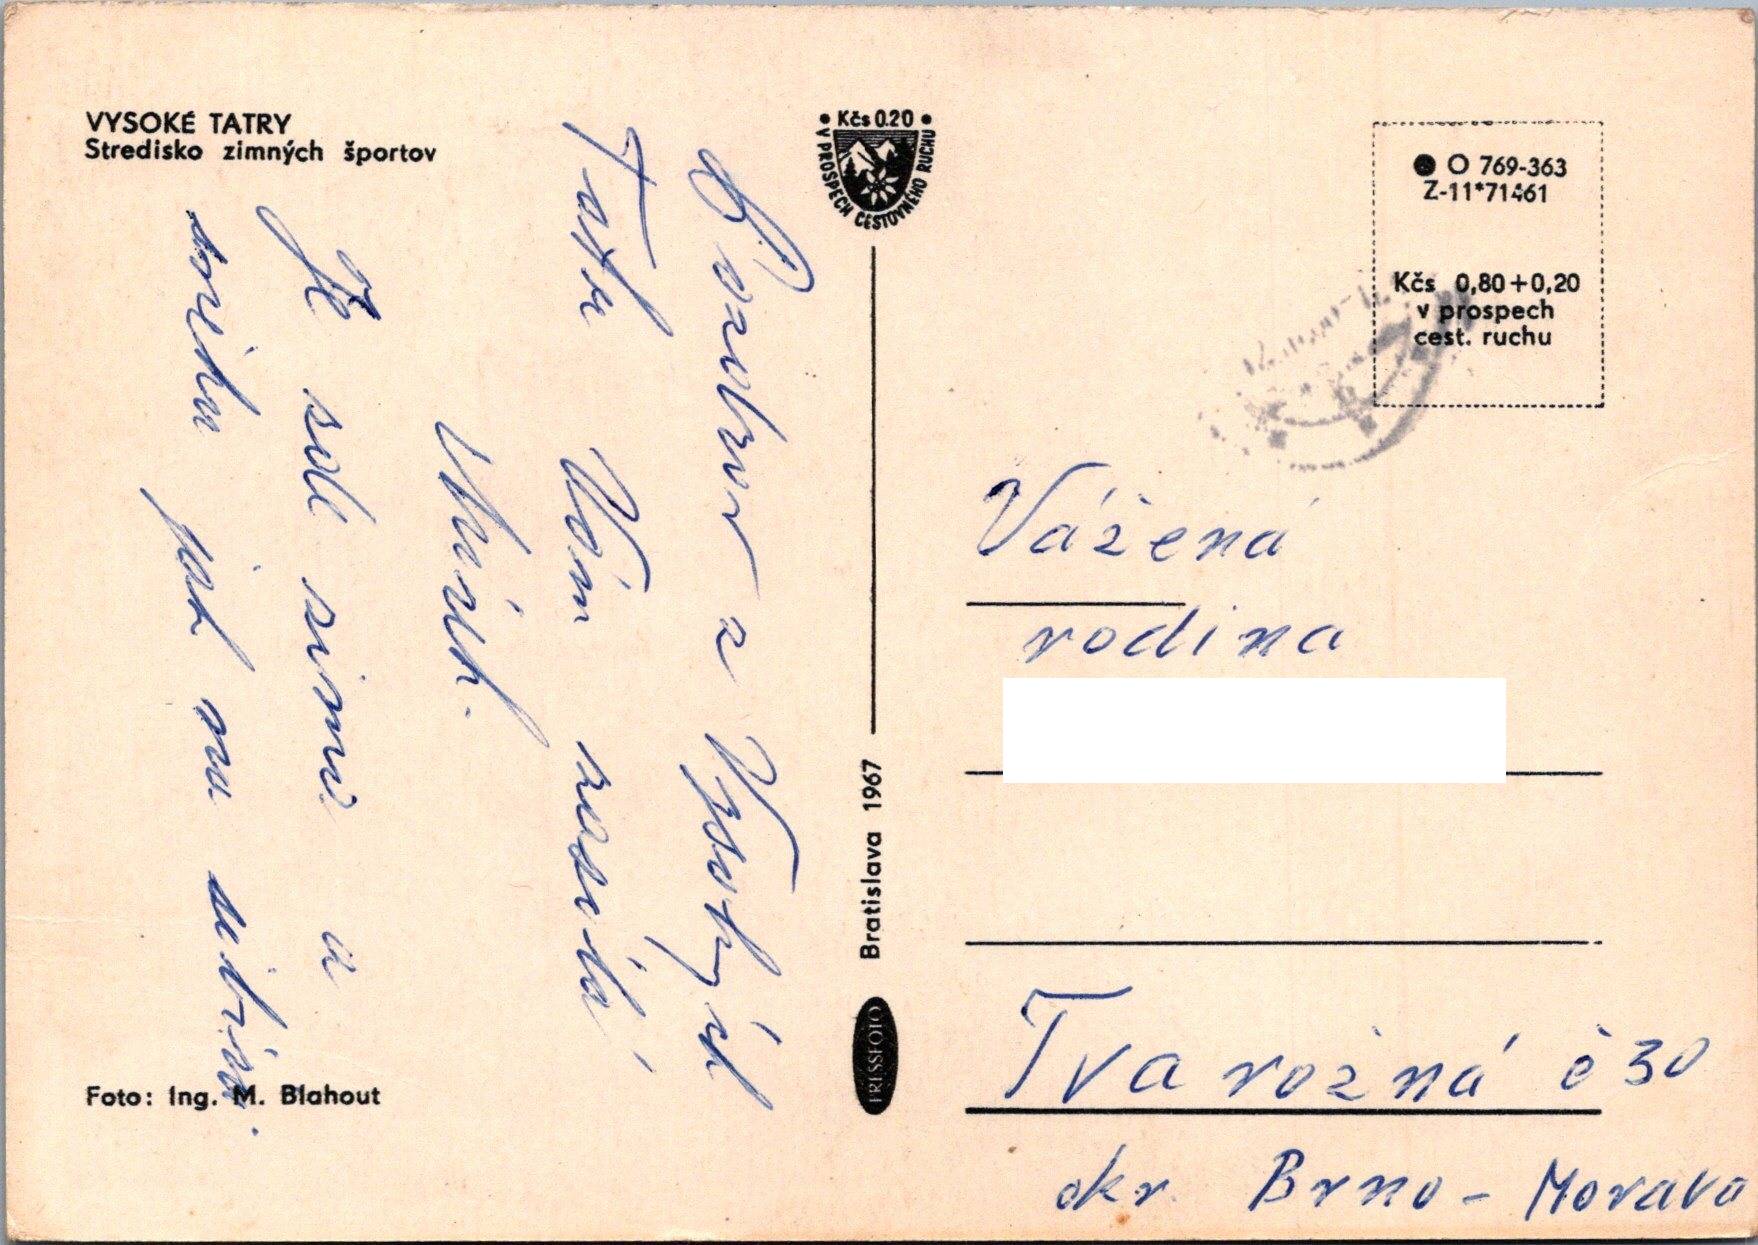 VYSOKÉ TATRY
Stredisko zimných športov
Pozdrav z Vysokých
Tater Vám zasílá
Je zde zima a
sněhu jak na
Foto: Ing. M. Blahout
• Kčs 0.20 •
V PROSPECH CESTOVNÉHO RUCHU
Bratislava 1967
PRESSFOTO
O 769-363
Z-11*71461
Kčs 0,80+0,20
v prospech
cest. ruchu
Vážená
rodina
Tvarožná č 30
okr. Brno - Morava